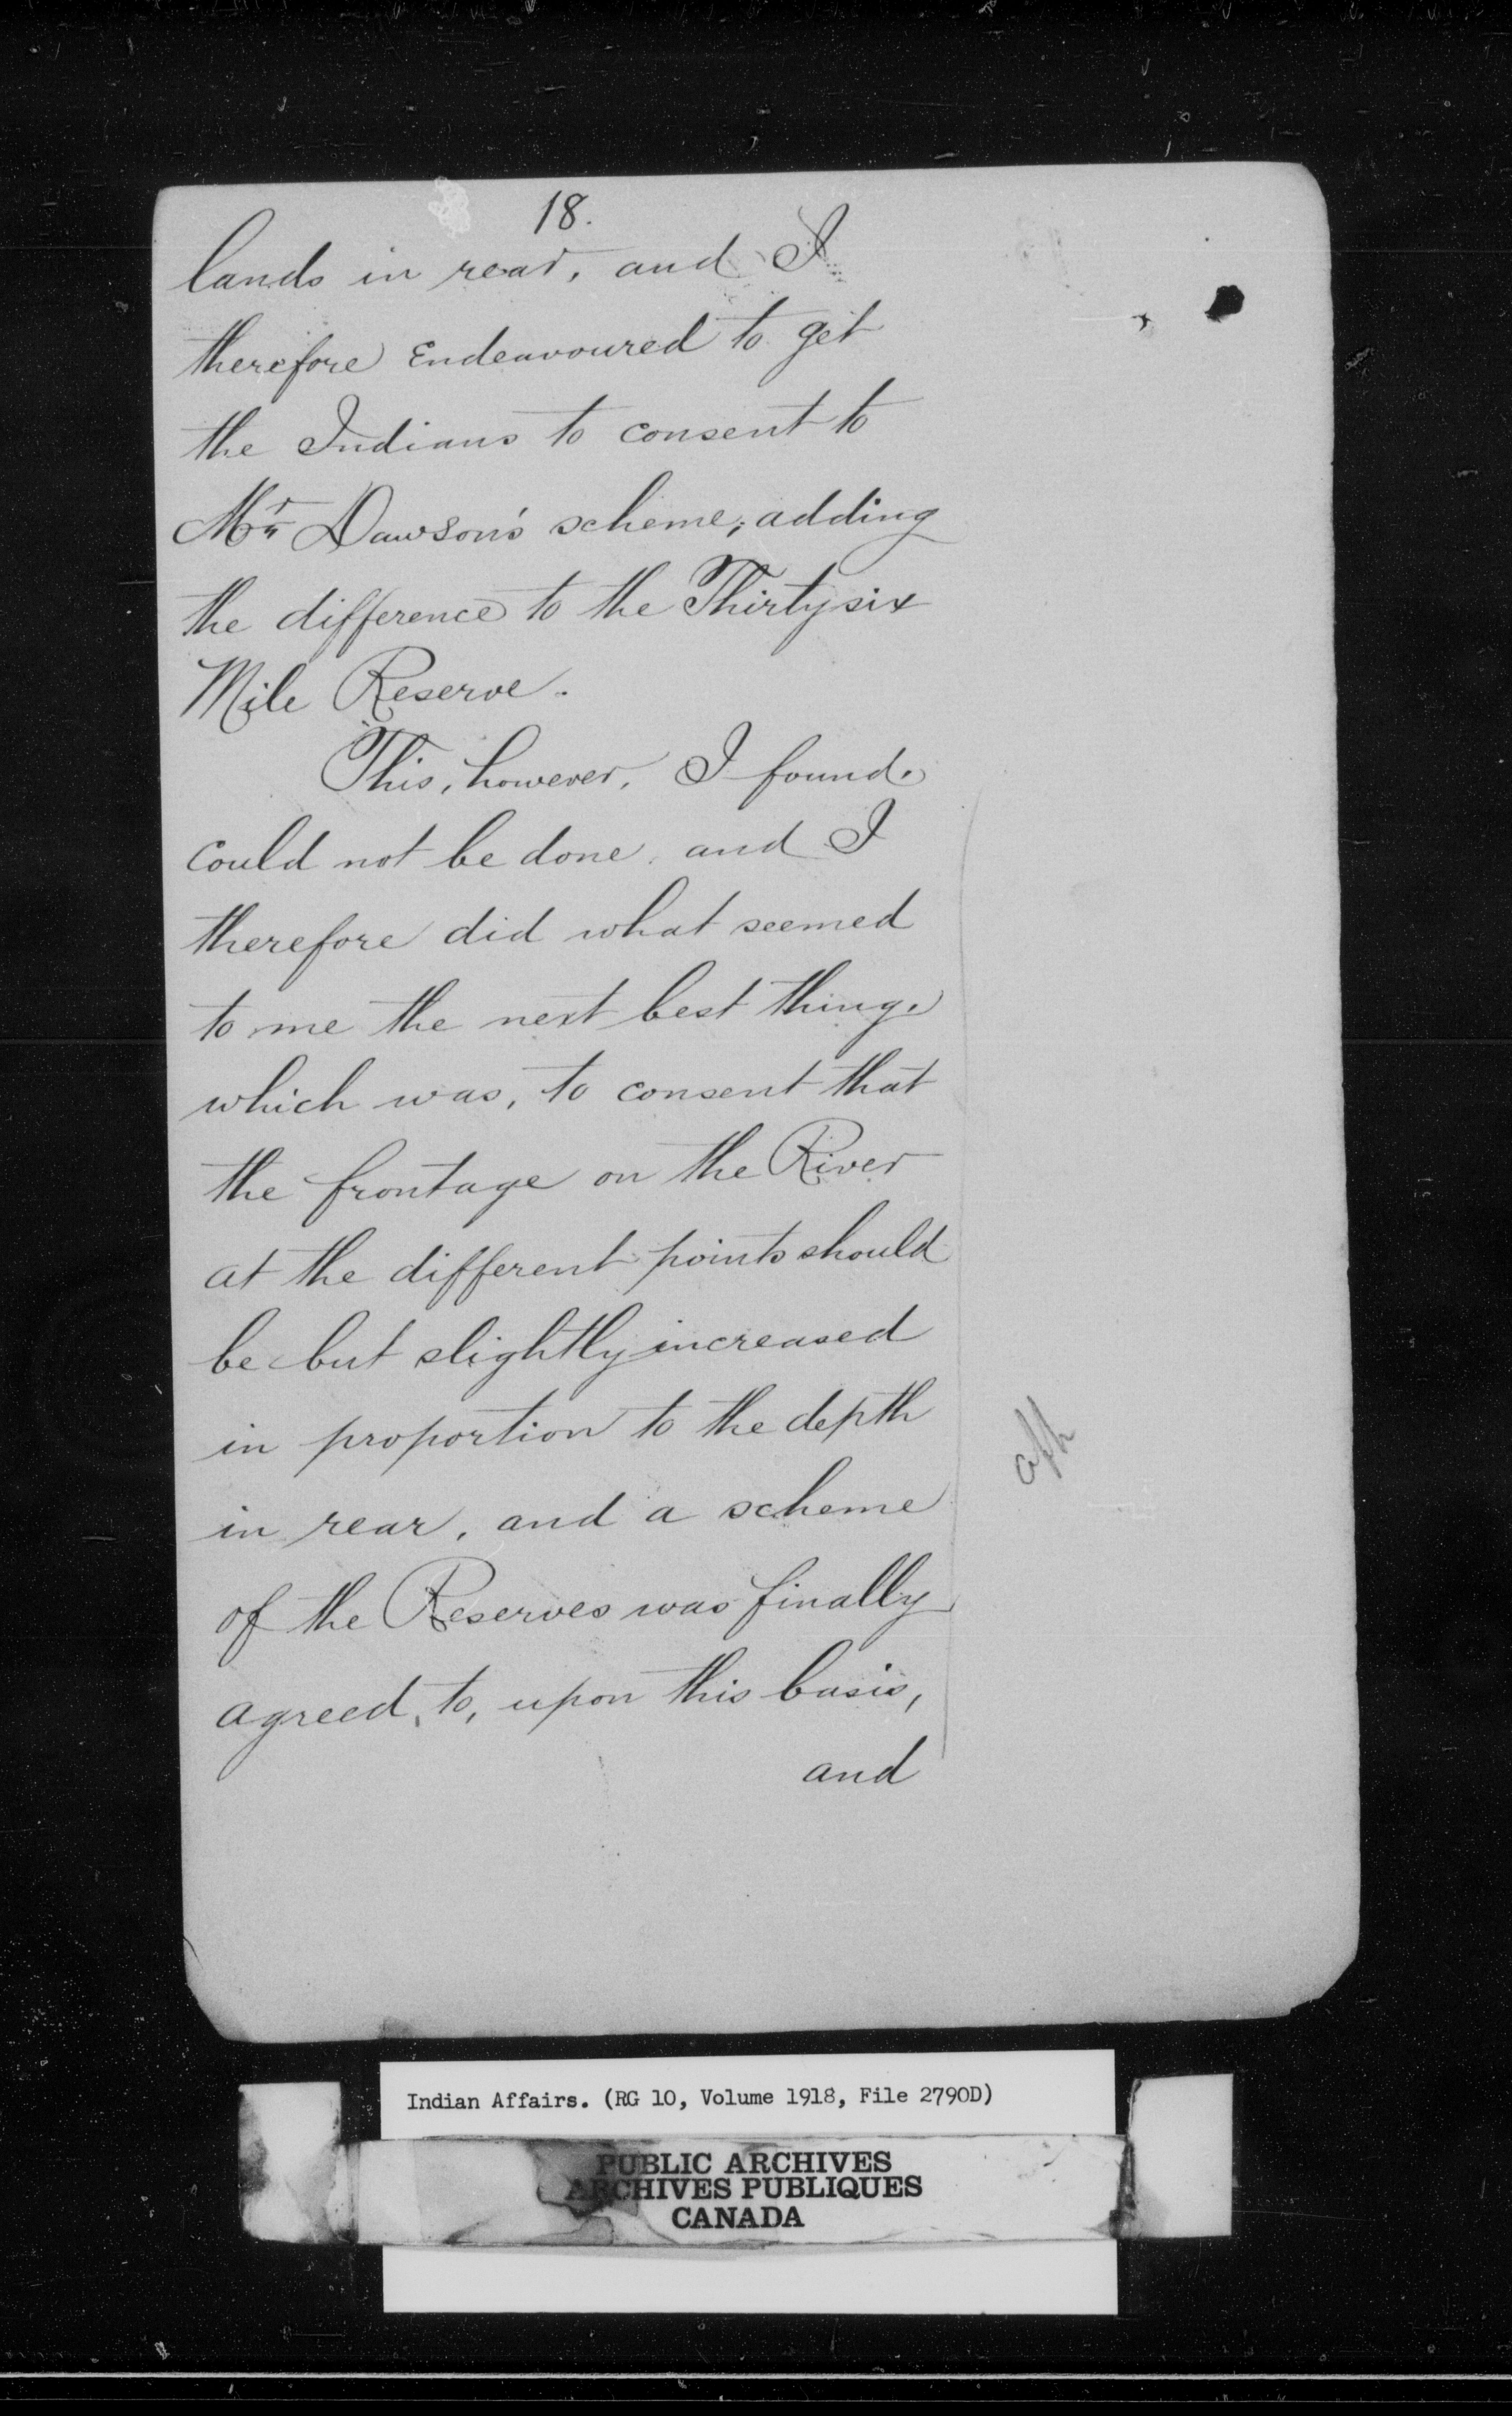 18.
lands in rear, and I
therefore Endeavoured to get
the Indians to consent to
Mr Dawson's scheme; adding
the difference to the Thirty six
Mile Reserve.
This, however, I found
could not be done, and I
therefore did what seemed
to me the next best thing,
which was, to consent that
the frontage on the River
at the different points should
be but slightly increased
in proportion to the depth
in rear, and a scheme
of the Reserves was finally
agreed, to, upon this basis,
and
Indian Affairs. (RG 10, Volume 1918, File 2790D)
PUBLIC ARCHIVES
ARCHIVES PUBLIQUES
CANADA